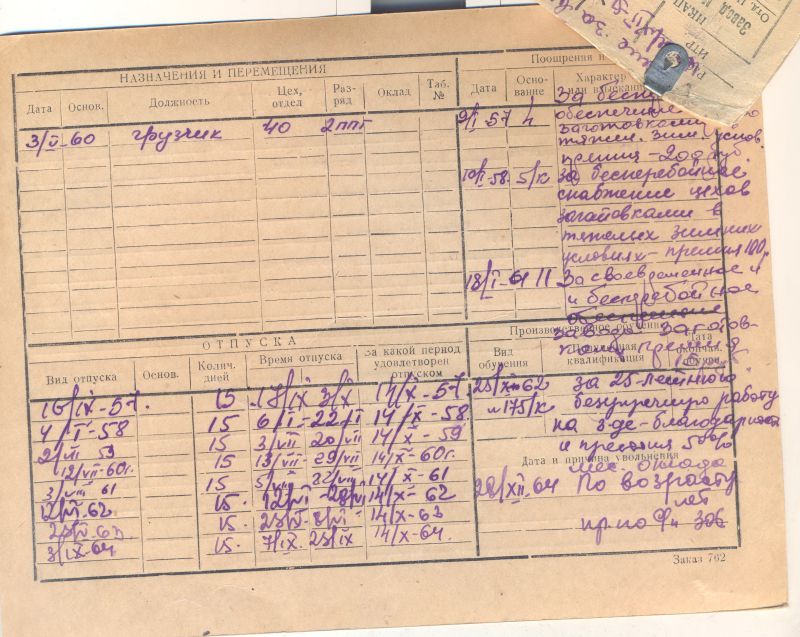 НКАП
Завод
ИТР
НАЗНАЧЕНИЯ И ПЕРЕМЕЩЕНИЯ
Дата Основ. Должность Цех, отдел Раз-ряд Оклад Таб. №
3/V-60 грузчик 40
Поощрения
Дата Осно-вание Характер
или взыскания
9/I-57 За бесп
обеспечение
заготовками
тяжел. зим. услов.
премия - 200 руб.
10/I-58. 5/к за бесперебойное
снабжение цехов
заготовками в
тяжелых зимних
условиях - премия 100р.
18/I-61 11 За своевременное
и бесперебойное
ОТПУСКА
Вид отпуска Основ. Колич. дней Время отпуска За какой период удовлетворен отпуском
16/IX-57. 15 17/IX 3/X 14/X-57.
4/I-58 15 6/I-22/I 14/X-58
2/VII 59 15 3/VII 20/VII 14/X-59
12/VII-60г. 15 13/VII-29/VII 14/X-60г.
3/VIII 61 15 5/VIII 22/VIII 14/X-61
12/VI-62 15. 12/VI-28/VI 14/X-62
15. 14/X-63
3/IX-64 15. 7/IX. 23/IX 14/X-64.
Производственное обучение
Вид обучения квалификация Дата
25/XII-62 за 25-летнюю
№175/к безупречную работу
на з-де - благодарность
и премия 50%
мес. оклада
Дата и причина увольнения
28/XII-64 По возрасту
лет
Заказ 762